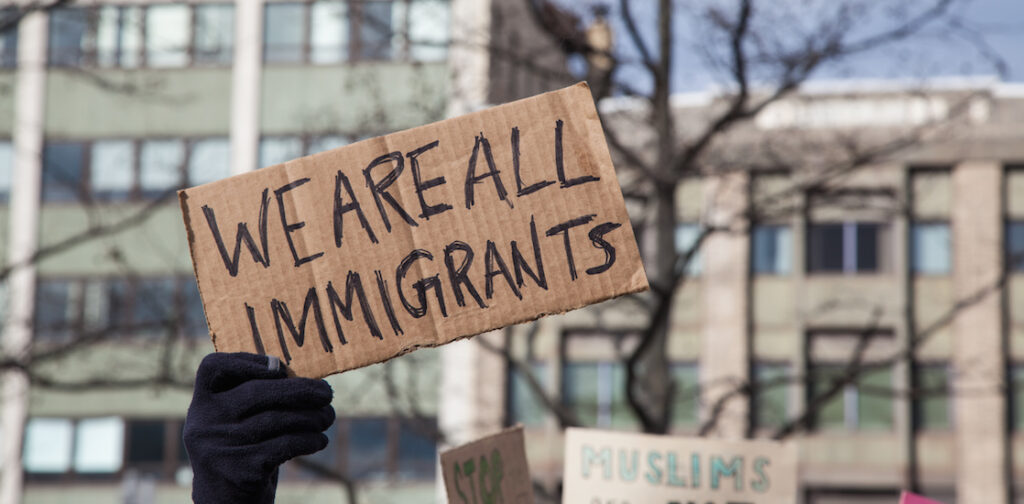 WE ARE ALL
IMMIGRANTS
STOP
MUSLIMS